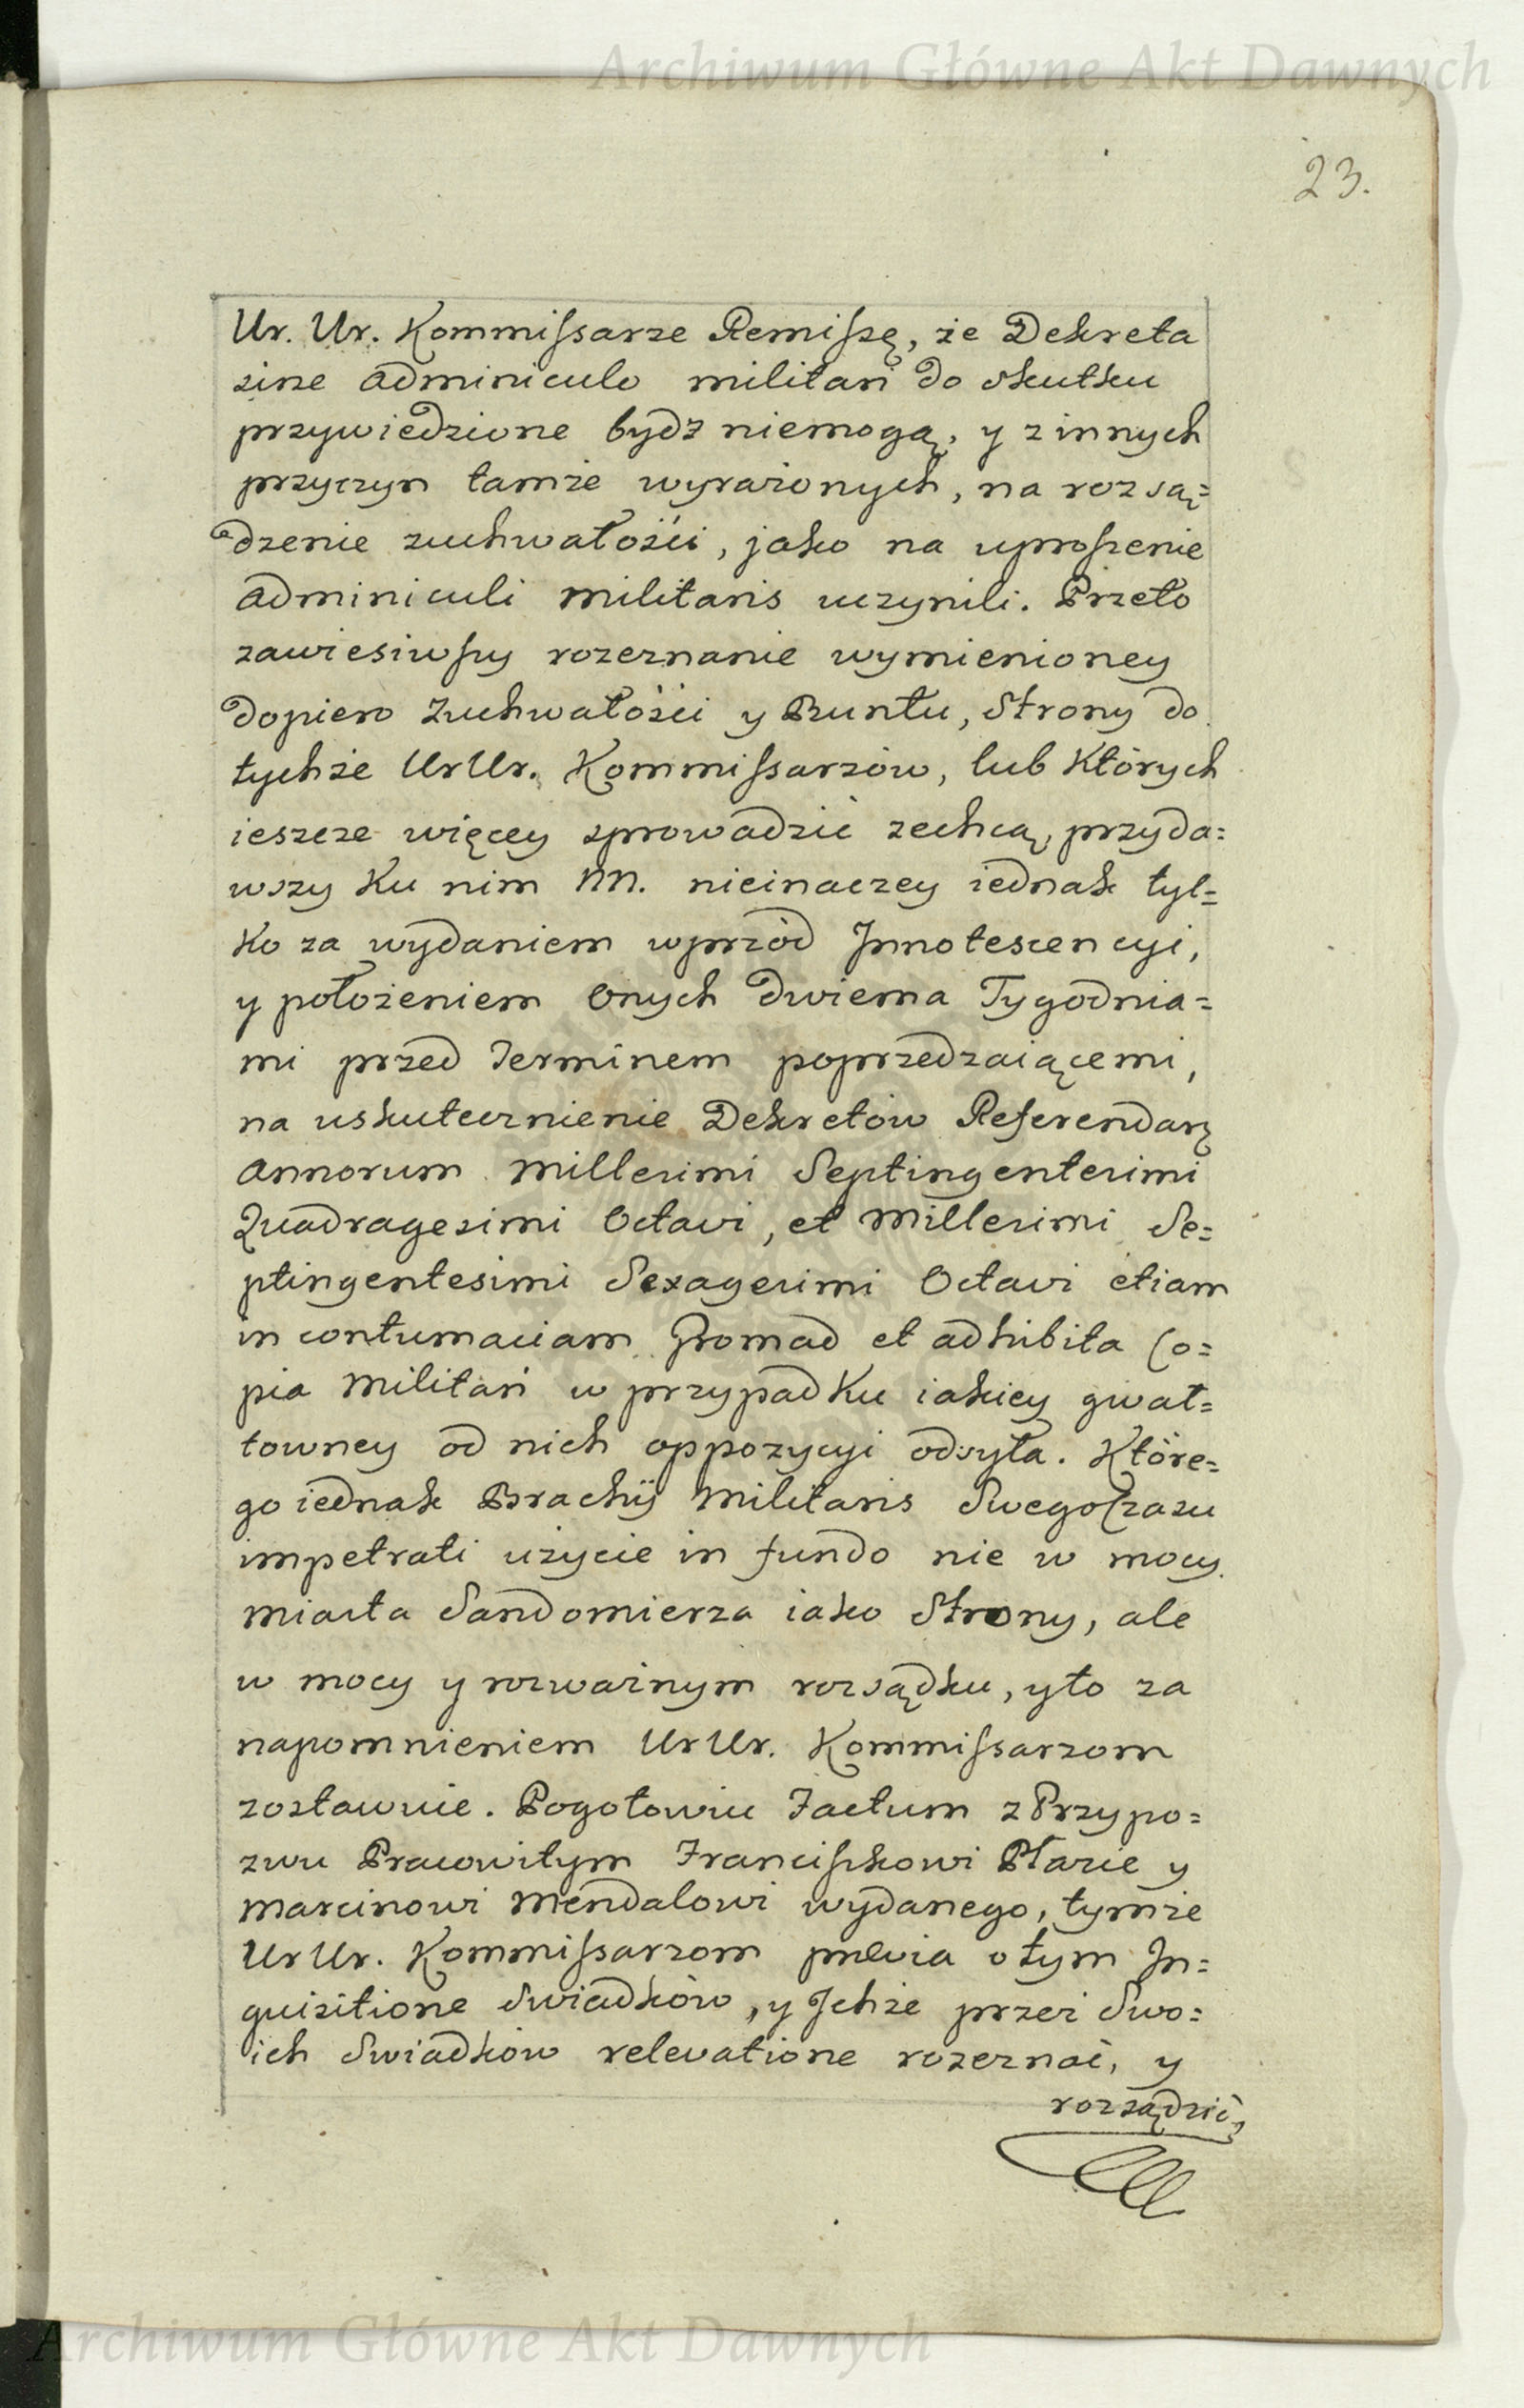 Archiwum Główne Akt Dawnych
23.
Ur. Ur. Kommiſsarze Remiſsę, że Dekreta
sine adminiculo militari do skutku
przywiedzione bydz niemogą, y z innych
przyczyn tamże wyrażonych, na rozsą=
dzenie zuchwałości, jako na uproſzenie
adminiculi militaris uczynili. Przeto
zawiesiwſzy rozeznanie wymienioney
dopiero zuchwałości y Buntu, Strony do
tychże UrUr. Kommiſsarzów, lub Których
ieszcze więcey sprowadzić zechcą, przyda=
wszy Ku nim NN. nieinaczey iednak tyl=
Ko za wydaniem wprzód Jnnotescencyi,
y położeniem Onych dwiema Tygodnia=
mi przed Terminem poprzedzaiącemi,
na uskutecznienie Dekretów Referendarz
annorum Millesimi Septingentesimi
Quadragesimi Octavi, et Millesimi Se=
ptingentesimi Sexagesimi Octavi etiam
in contumaciam Gromad et adhibita Co=
pia Militari w przypadKu iakiey gwał=
towney od nich oppozycyi odsyła. Któré=
go iednak Brachij Militaris Swego Czasu
impetrati użycie in fundo nie w mocy
Miasta Sandomierza iako Strony, ale
w mocy y rozważnym rozsądku, y to za
napomnieniem UrUr. Kommiſsarzom
zostawuie. Pogotowiu Factum z Przypo=
zwu Pracowitym Franciſzkowi Ptazie y
Marcinowi Mendalowi wydanego, tymże
UrUr. Kommiſsarzom prævia o tym Jn=
quisitione Swiadków, y Jchże przez Swo=
ich Swiadków relevatione rozeznać, y
rozsądzić
Archiwum Główne Akt Dawnych